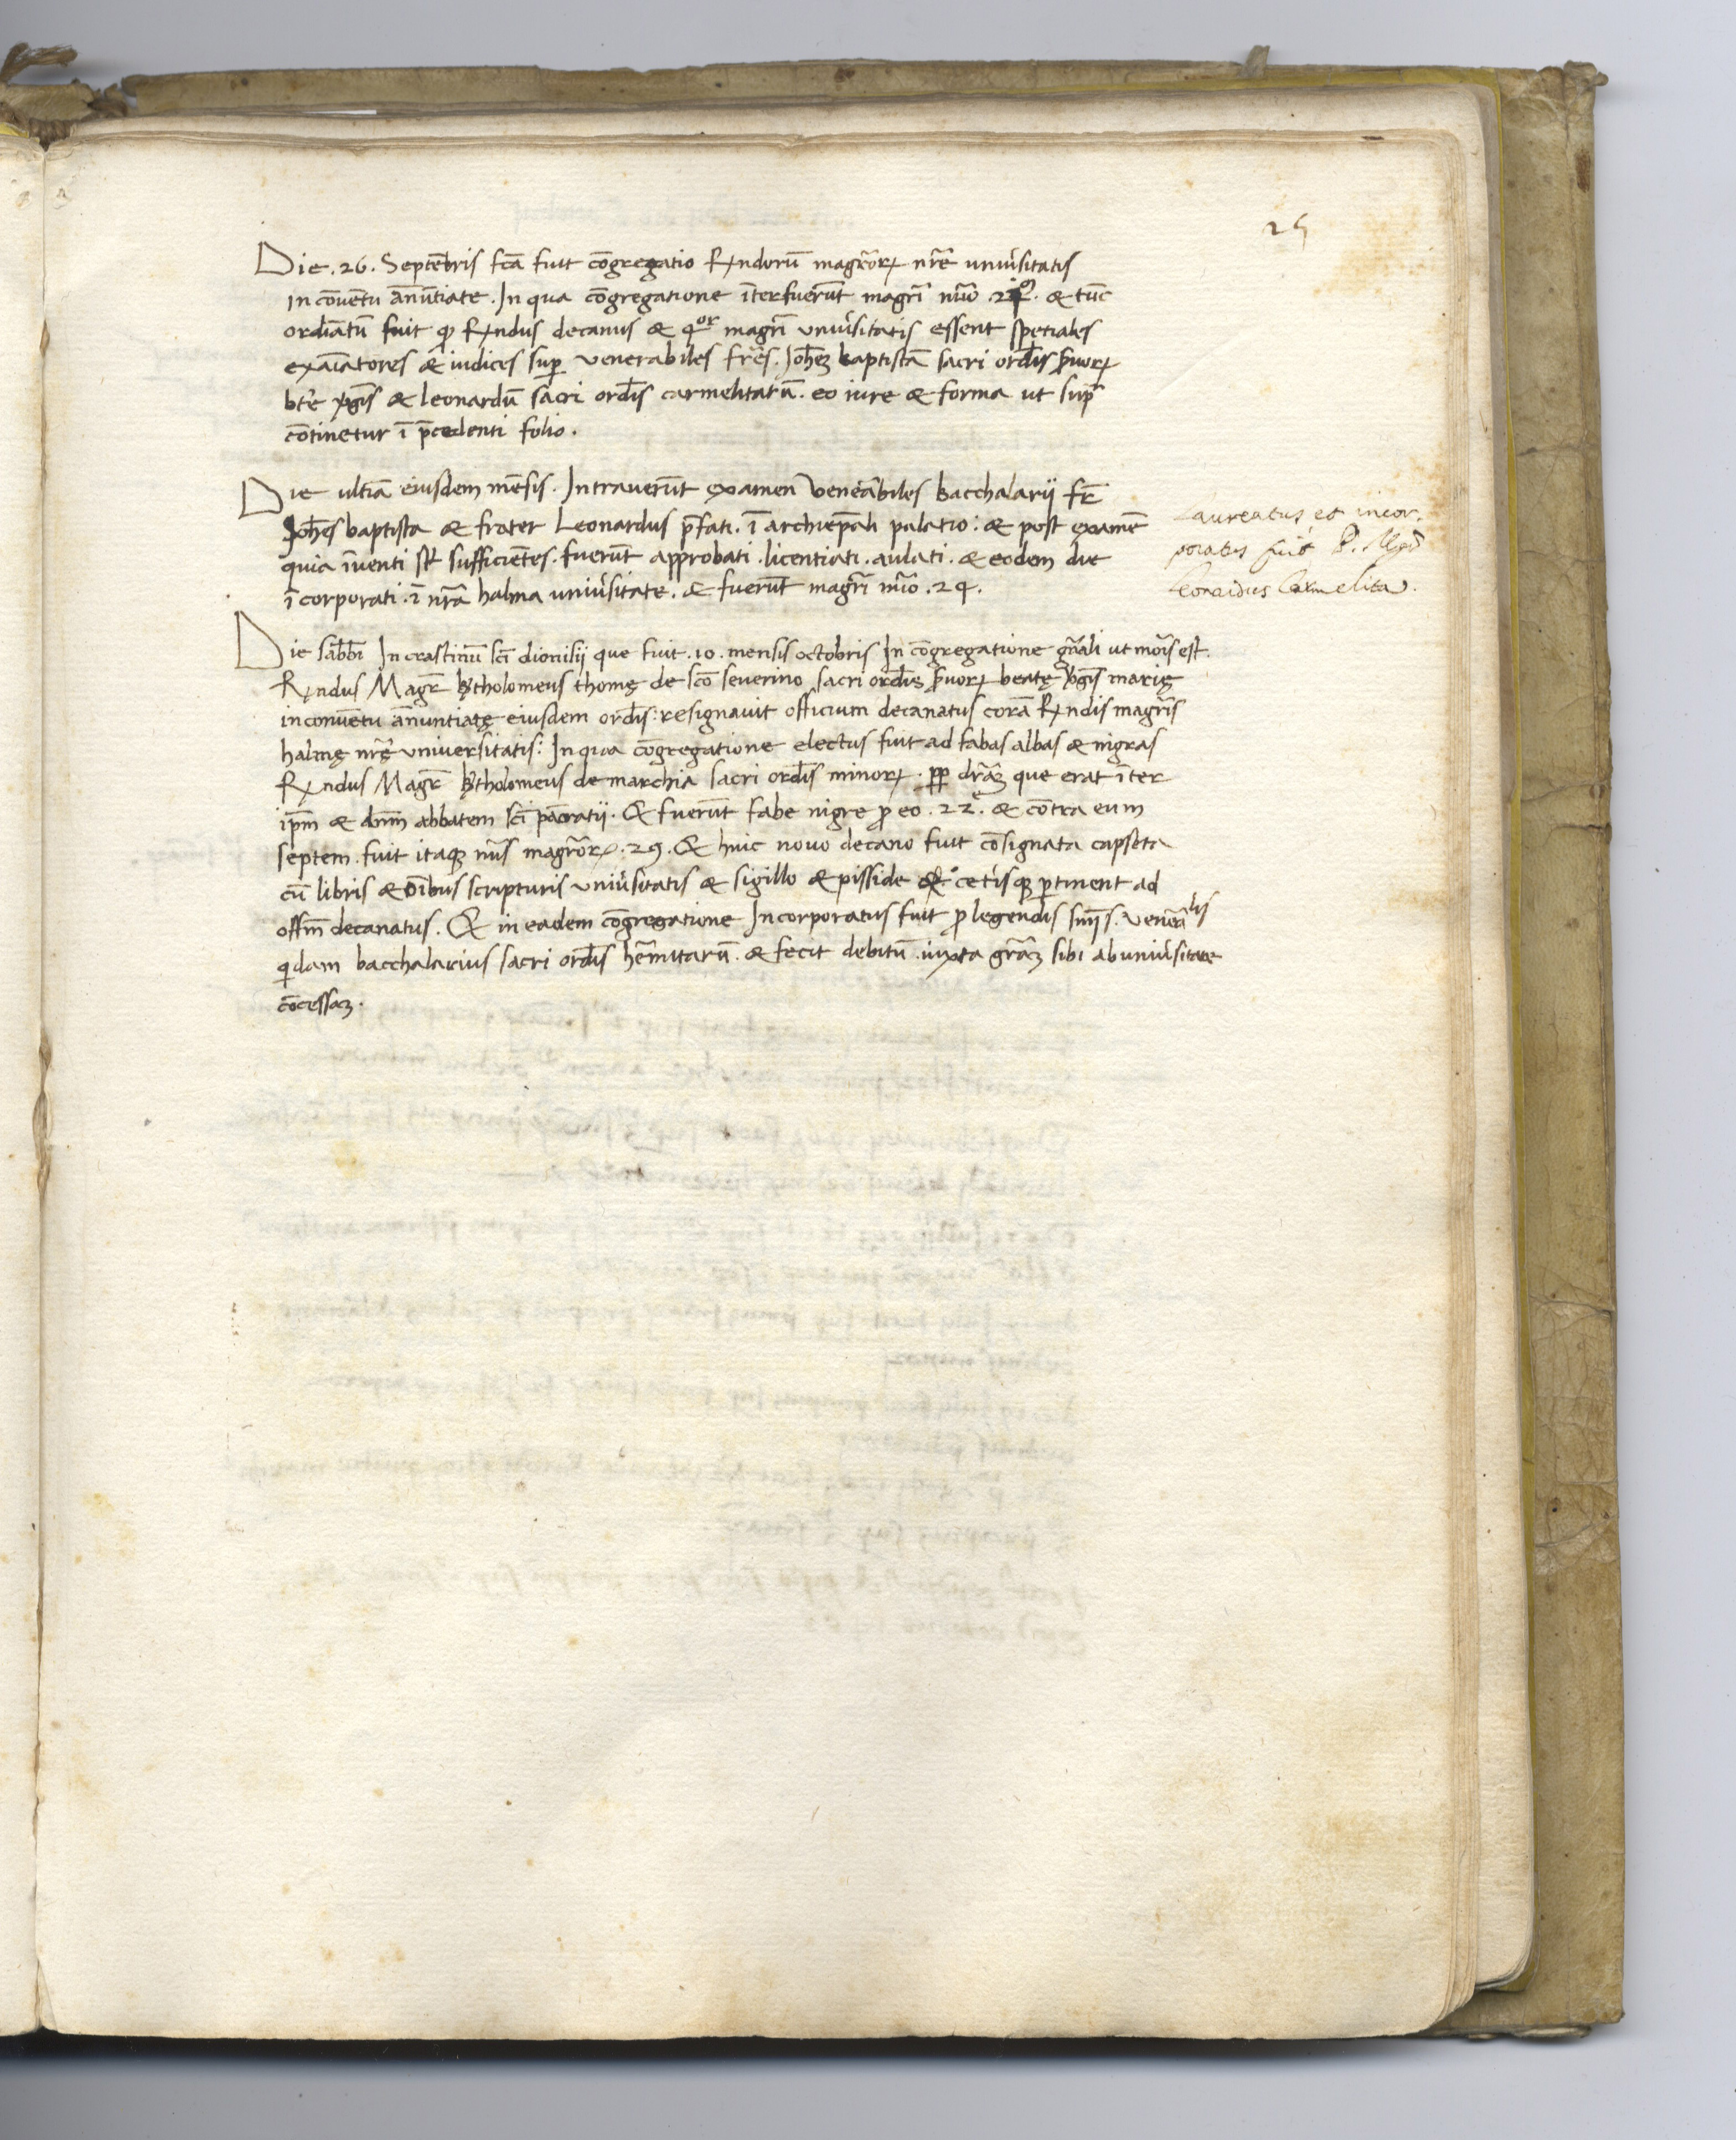 25
Die .26. Septēbris fcā fuit cōgregatio R̄ndorū magr̄orꝝ nr̄e univ̄sitatis
in cōvētu ānūtiate. In qua cōgregatione īterfuerūt magr̄i nūo & tūc
ordīatū fuit ꝙ R̄ndus decanus & 4or magr̄i univ̄sitatis essent spetiales
exaīatores & iudices sup̄ venerabiles fr̄es. Joh̄eȝ baptistā sacri ord̄is s̄vorꝝ
bt̄e v̄gīs & leonardū sacri ord̄is carmelitarū. eo iure & forma ut sup̄
cōtinetur ī p̄cedenti folio.
Die ultīa eiusdem mēsis. Intraverūt examen veneābiles bacchalarii fr̄
Joh̄es baptista & frater Leonardus p̄fati. ī archiep̄ali palatio: & post examē
quia īventi st̄ sufficiētes. fuerūt approbati. licentiati. aulati. & eodem die
īcorporati. ī nr̄a halma univ̄sitate. & fuerūt magr̄i nūo .24.
Laureatus et incor-
poratus fuit P. Mgr̄
Leonardus Carmelita.
Die sabb̄i In crastinū sc̄i dionisii que fuit .10. mensis octobris In cōgregatione gn̄ali ut mōis est.
R̄ndus Magr̄ b̄tholomeus thomę de sc̄o severino sacri ord̄is s̄vorꝝ beatę v̄gīs marię
in convētu ānuntiatę eiusdem ord̄is: resignavit officium decanatus corā R̄ndis magr̄is
halmę nr̄ę universitatis: In qua cōgregatione electus fuit ad fabas albas & nigras
R̄ndus Magr̄ b̄tholomeus de marchia sacri ord̄is minorꝝ. pp̄ dr̄āȝ que erat īter
ip̄m & dn̄m abbatem sc̄i pācratii. & fuerūt fabe nigre ꝓ eo .22. & cōtra eum
septem. fuit itaqꝫ nūs magr̄orꝝ .29. & huic novo decano fuit cōsignata capseta
cū libris & oībus scripturis univ̄sitatis & sigillo & pisside & cet̄isqꝫ p̄tinent ad
off̄m decanatus. & in eadem cōgregatione Incorporatus fuit ꝓ legendis sn̄iis. venerālis
qidam bacchalarius sacri ord̄is her̄mitarū. & fecit debitū iuxta gr̄āȝ sibi ab univ̄sitate
cōcessaȝ.